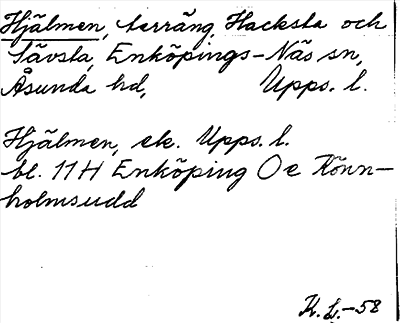 Hjälmen, terräng, Hacksta och
Sävsta, Enköpings-Näs sn,
Åsunda hd, Upps. l.
Hjälmen, ek. Upps. l.
bl. 11H Enköping O e Rönn-
holmsudd
K. L.-58